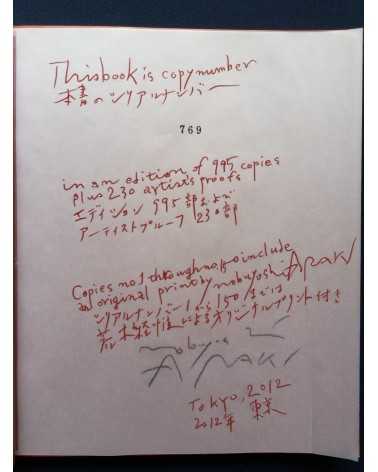 This book is copy number
本書のシリアルナンバー
769
in an edition of 995 copies
plus 230 artist's proofs
エディション 995部および
アーティストプルーフ 230部
Copies no.1 through no.150 include
an original print by nobuyoshi ARAKI
シリアルナンバー1から150までは
荒木経惟によるオリジナルプリント付き
nobuyoshi
ARAKI
Tokyo, 2012
2012年 東京